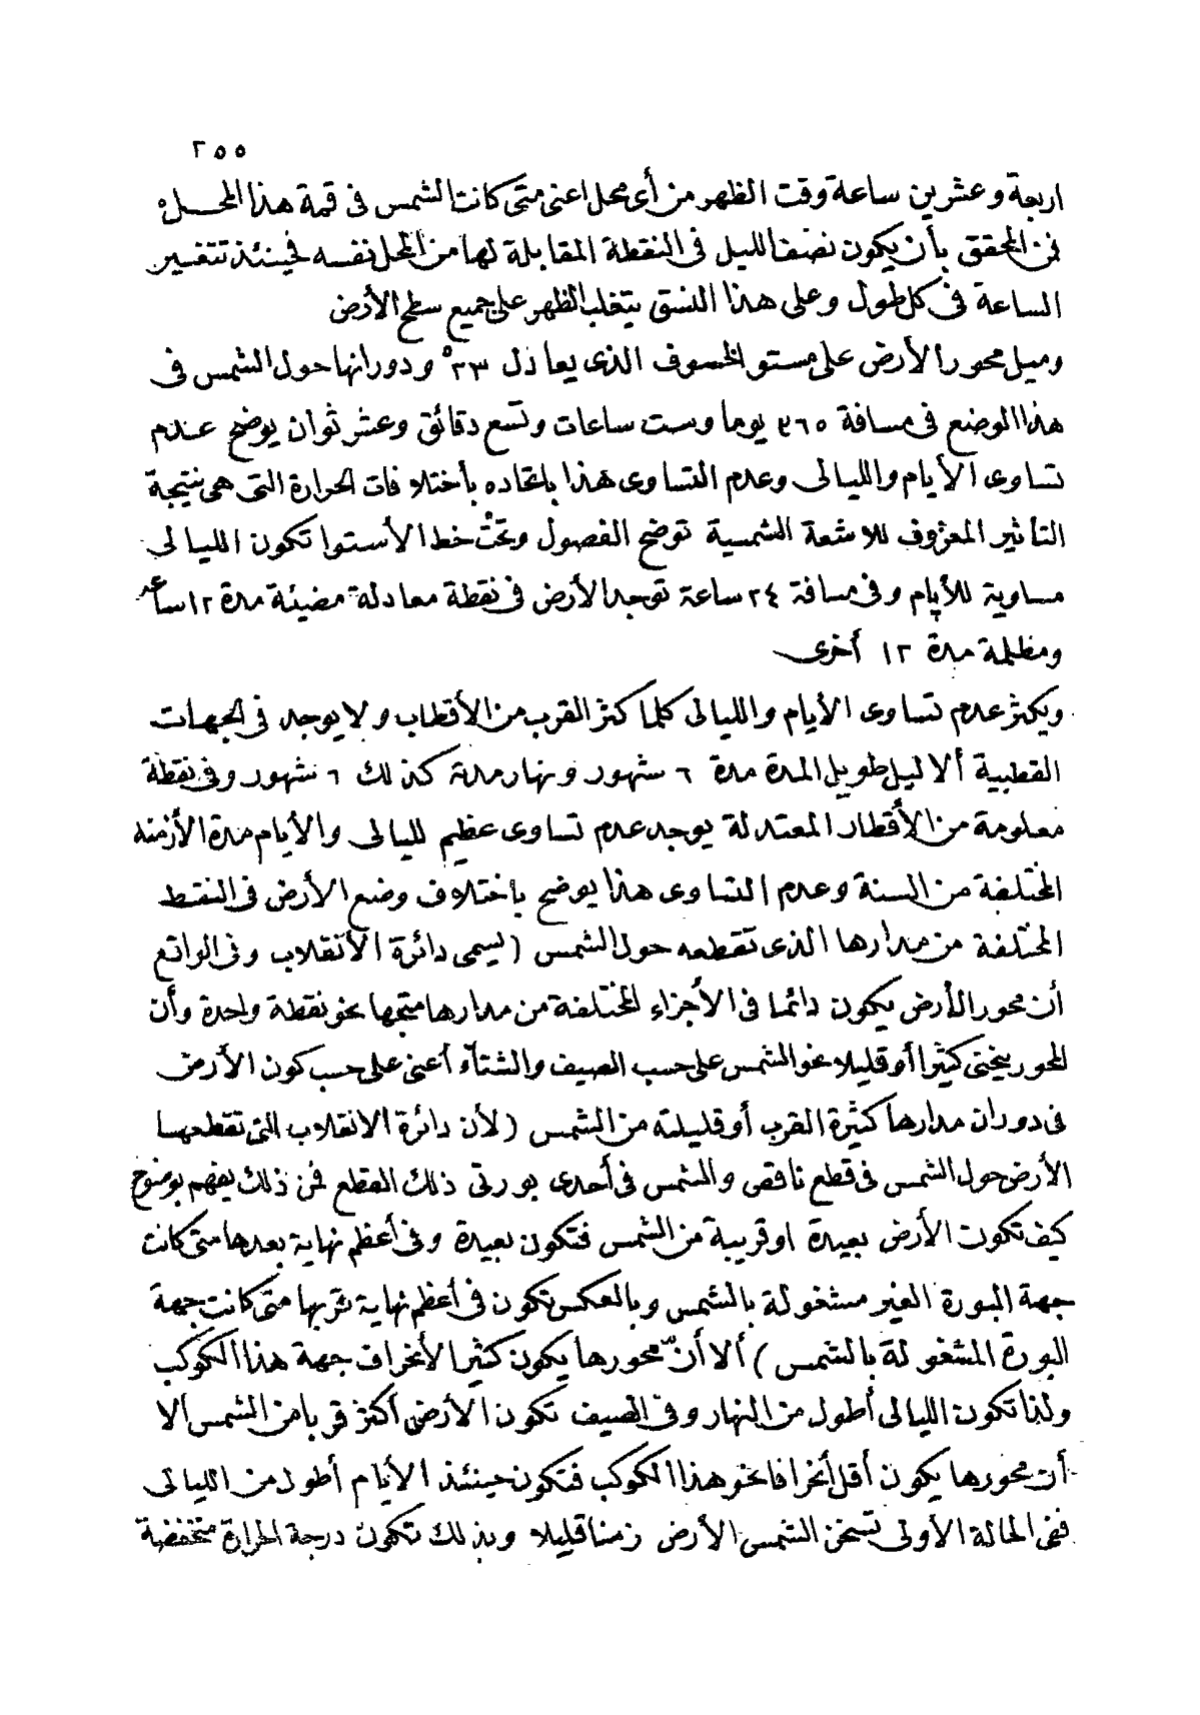 ٢٥٥
اربعة وعشرين ساعة وقت الظهر من أى محل اعنى متى كانت الشمس فى قمة هذا المحل
فمن المحقق بأن يكون نصف الليل فى النقطة المقابلة لها من المحل نفسه فحينئذ تتغير
الساعة فى كل طول وعلى هذا النسق يتقلب الظهر على جميع سطح الأرض
وميل محور الأرض على مستو الخسوف الذى يعادل ٢٣° ودورانها حول الشمس فى
هذا الوضع فى مسافة ٣٦٥ يوما وست ساعات وتسع دقائق وعشر ثوان يوضح عدم
تساوى الأيام والليالى وعدم التساوى هذا باتحاده بأختلافات الحرارة التى هى نتيجة
التأثير المعزوف للاشعة الشمسية توضح الفصول وتحت خط الأستوا تكون الليالى
مساوية للأيام وفى مسافة ٢٤ ساعة توجد الأرض فى نقطة معادلة مضيئة مدة ١٢ ساعة
ومظلمة مدة ١٢ أخرى
ويكثر عدم تساوى الأيام والليالى كلما كثر القرب من الأقطاب ولا يوجد فى الجهات
القطبية ألا ليل طويل المدة مدة ٦ شهور ونهار مدته كذلك ٦ شهور وفى نقطة
معلومة من الأقطار المعتدلة يوجد عدم تساوى عظيم لليالى والأيام مدة الأزمنه
المختلفة من السنة وعدم التساوى هذا يوضح باختلاف وضع الأرض فى النقط
المختلفة من مدارها الذى تقطعه حول الشمس (يسمى دائرة الأنقلاب وفى الواقع
أن محور الأرض يكون دائما فى الأجزاء المختلفة من مدارها متجها نحو نقطة واحدة وأن
المحور ينحنى كثيرا أو قليلا نحو الشمس على حسب الصيف والشتآء أعنى على حسب كون الأرض
فى دوران مدارها كثيرة القرب أو قليلته من الشمس (لأن دائرة الانقلاب التى تقطعها
الأرض حول الشمس فى قطع ناقص والشمس فى أحدى بورتى ذلك القطع فمن ذلك يفهم بوضوح
كيف تكون الأرض بعيدة او قريبة من الشمس فتكون بعيدة وفى أعظم نهاية بعدها متى كانت
جهة البورة الغير مشغولة بالشمس وبالعكس تكون فى أعظم نهاية قربها متى كانت جهة
البورة المشغولة بالشمس) ألا أنّ محورها يكون كثير الأنحراف جهة هذا الكوكب
ولذا تكون الليالى أطول من النهار وفى الصيف تكون الأرض أكثر قربا من الشمس ألا
أن محورها يكون أقل أنحرافا نحو هذا الكوكب فتكون حينئذ الأيام أطول من الليالى
ففى الحالة الأولى تسخن الشمس الأرض زمنا قليلا وبذلك تكون درجة الحرارة منخفضة